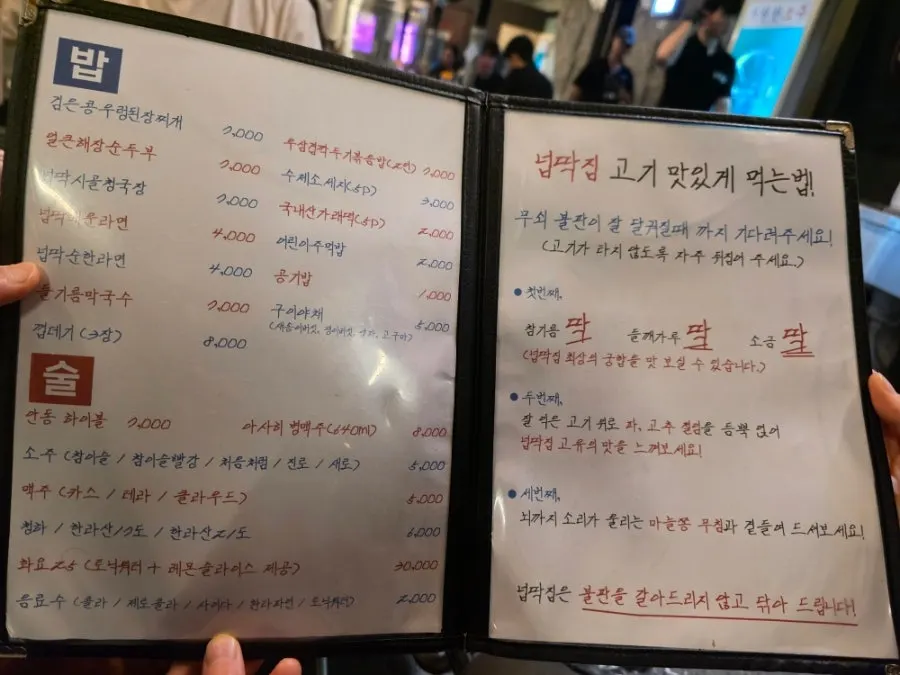 밥
검은콩우렁된장찌개 7,000
얼큰해장순두부 7,000
넙딱시골청국장 7,000
넙딱매운라면 4,000
넙딱순한라면 4,000
들기름막국수 7,000
껍데기 (3장) 8,000
우삼겹깍두기볶음밥(2인) 7,000
수제소세지(5P) 3,000
국내산가래떡(5P) 2,000
어린이주먹밥 2,000
공기밥 1,000
구이야채 5,000
술
안동 하이볼 7,000
아사히 병맥주(640ml) 8,000
소주 (참이슬 / 참이슬빨강 / 처음처럼 / 진로 / 새로) 5,000
맥주 (카스 / 테라 / 클라우드) 5,000
청하 / 한라산17도 / 한라산21도 6,000
화요25 (토닉워터 + 레몬슬라이스 제공) 30,000
음료수 (콜라 / 제로콜라 / 사이다 / 환타파인 / 토닉워터) 2,000
넙딱집 고기 맛있게 먹는법!
무쇠 불판이 잘 달궈질때 까지 기다려주세요!
(고기가 타지 않도록 자주 뒤집어 주세요.)
● 첫번째,
참기름 딱 들깨가루 딱 소금 딱
(넙딱집 최상의 궁합을 맛 보실 수 있습니다.)
● 두번째,
잘 익은 고기 위로 파, 고추 절임을 듬뿍 얹어
넙딱집 고유의 맛을 느껴보세요!
● 세번째,
뇌까지 소리가 울리는 마늘쫑 무침과 곁들여 드셔보세요!
넙딱집은 불판을 갈아드리지 않고 닦아 드립니다!